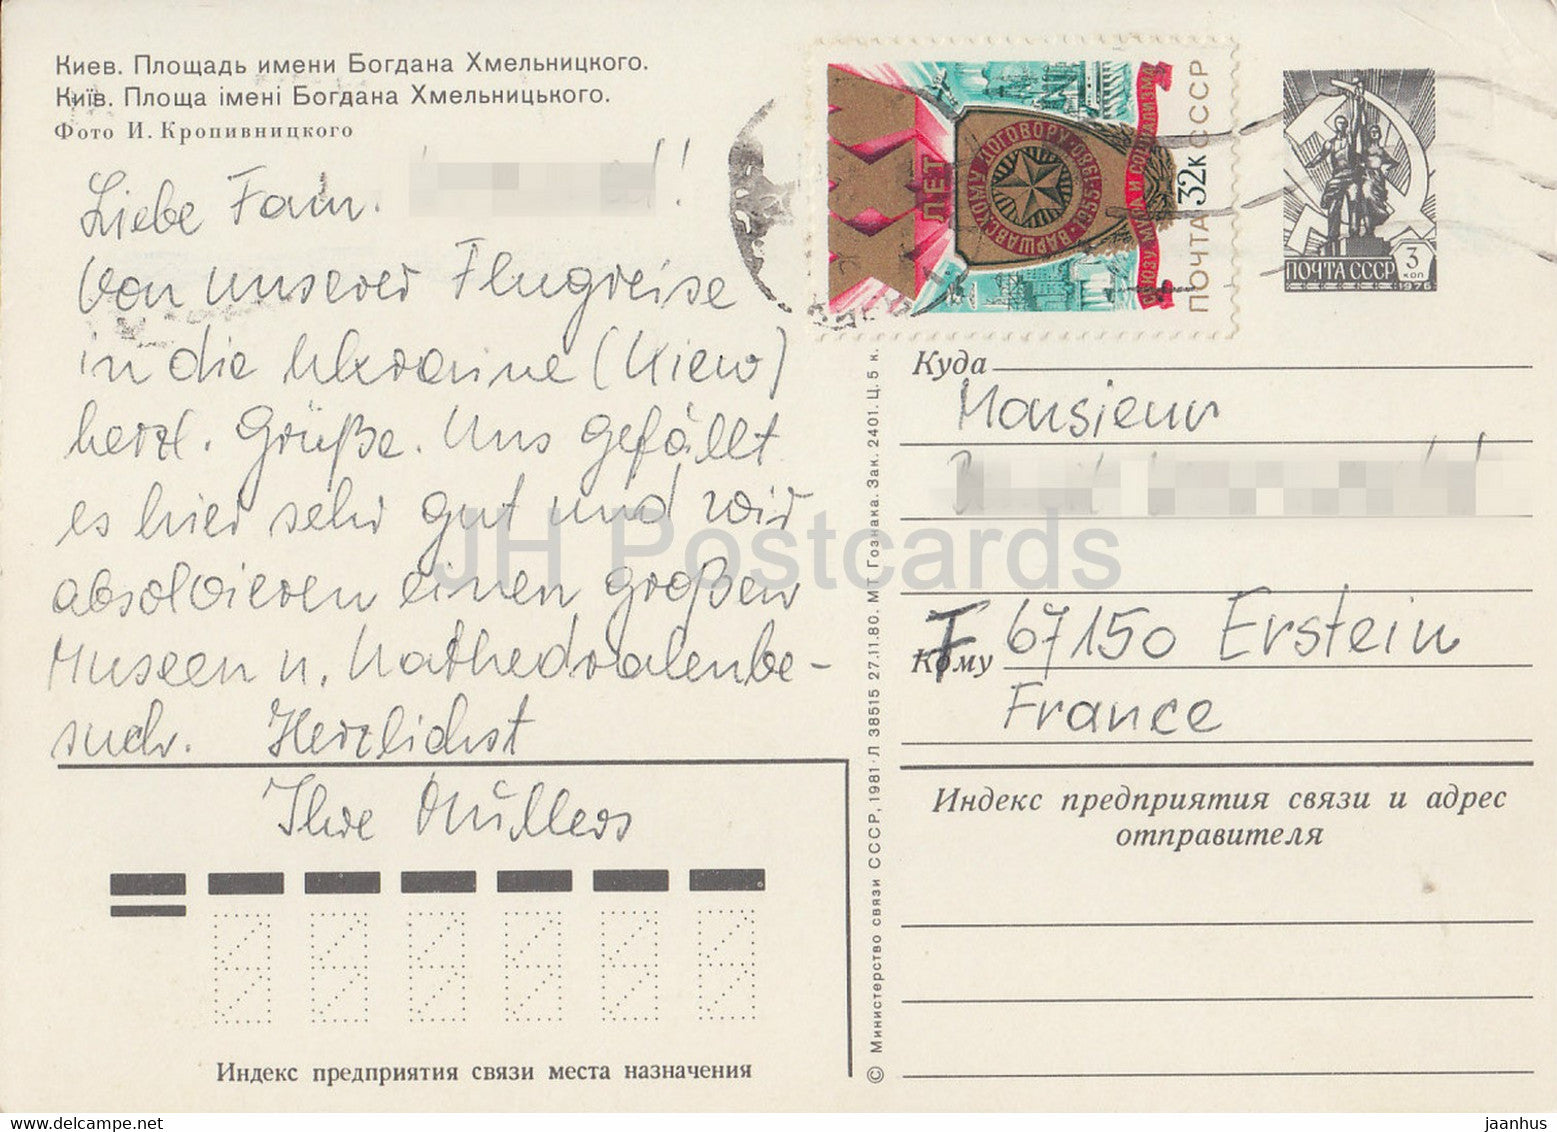 Киев. Площадь имени Богдана Хмельницкого.
Київ. Площа імені Богдана Хмельницького.
Фото И. Кропивницкого
Liebe Fam. !
Von unserer Flugreise
in die Ukraine (Kiew)
herzl. Grüße. Uns gefällt
es hier sehr gut und wir
absolvieren einen großen
Museen u. Kathedralenbe-
such. Herzlichst
Ihre Müllers
Индекс предприятия связи места назначения
© Министерство связи СССР, 1981 · Л 38515 27.11.80. МТ Гознака. Зак. 2401. Ц. 5 к.
ЛЕТ
ВАРШАВСКОМУ ДОГОВОРУ · 1955-1980 ·
СОЮЗУ МИРА И СОЦИАЛИЗМА
ПОЧТА 32к СССР
ПОЧТА СССР
3
коп
1976
Куда
Monsieur
Кому
F 67150 Erstein
France
Индекс предприятия связи и адрес
отправителя
JH Postcards
jaanhus